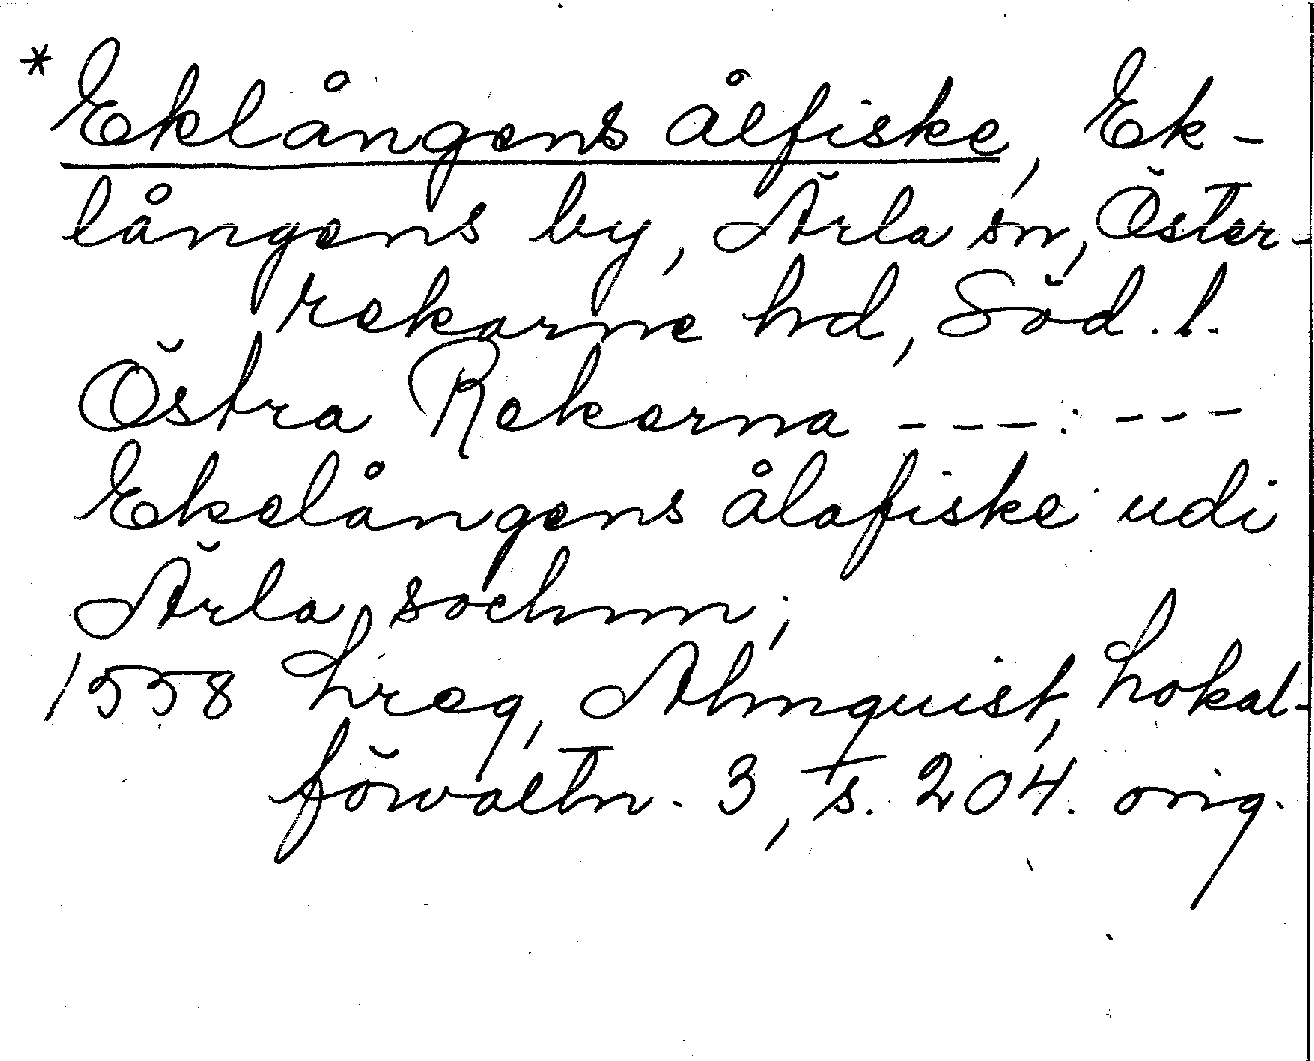 *Eklångens ålfiske, Ek-
långens by, Ärla sn, Öster-
rekarne hd, Söd. l.
Östra Rekarna ---: ---
Ekelångens ålafiske udi
Ärla sochnn;
1558 Lreg, Almquist, Lokal-
förvaltn. 3, s. 204. orig.